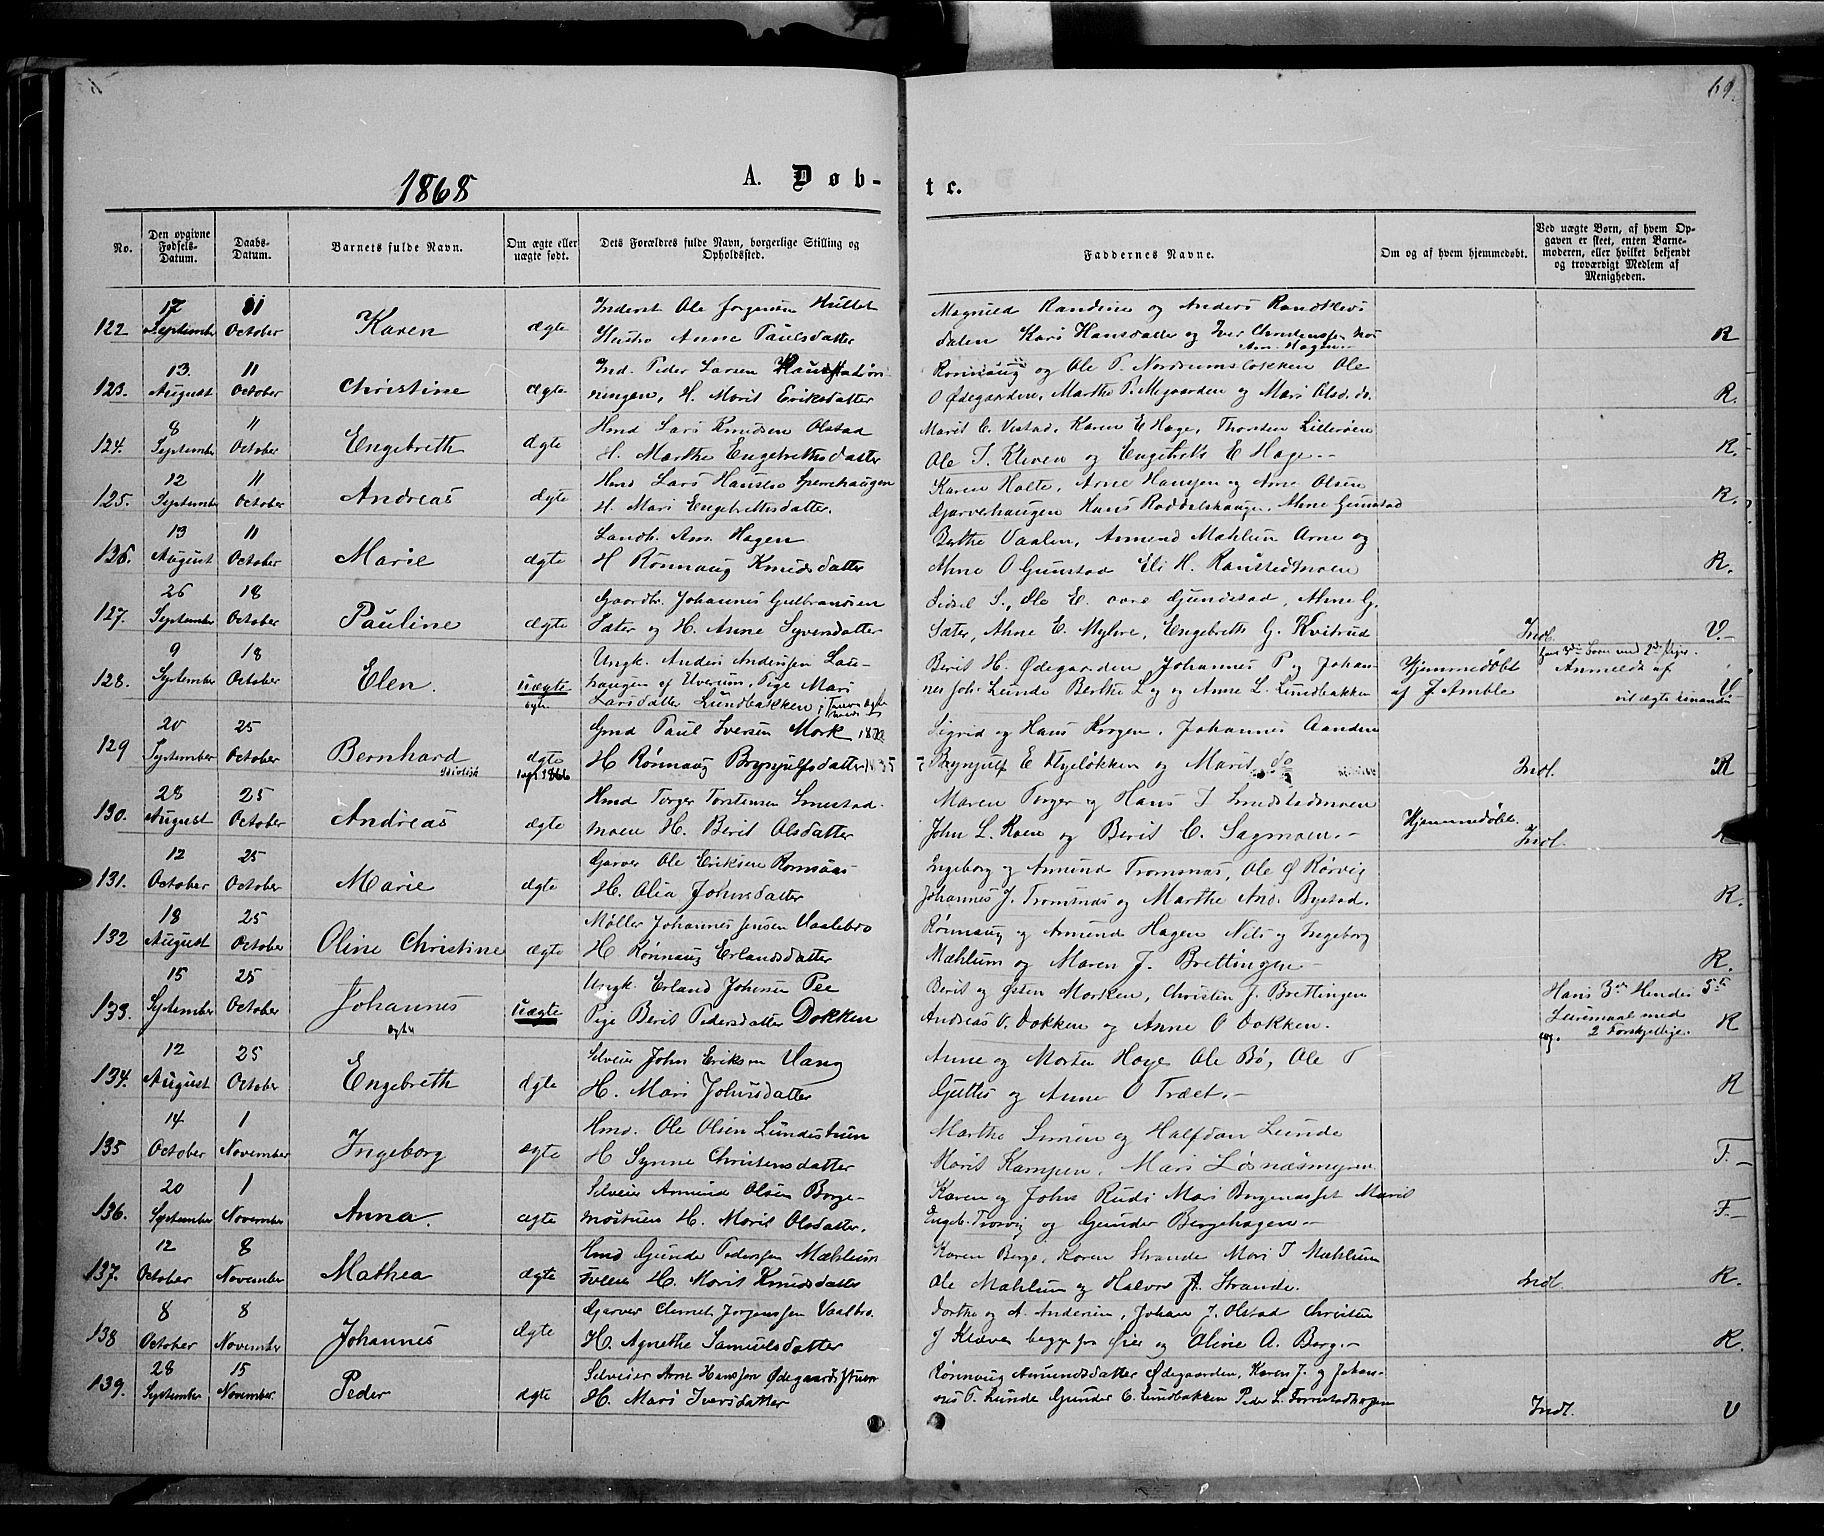 69.
1868
A. Døb-
te.
No.
Den opgivne Fødsels-Datum.
Daabs-Datum.
Barnets fulde Navn.
Om ægte eller uægte født.
Dets Forældres fulde Navn, borgerlige Stilling og Opholdssted.
Faddernes Navne.
Om og af hvem hjemmedøbt.
Ved uægte Børn, af hvem Opgaven er skeet, enten Barnemoderen, eller hvilket bekjendt og troværdigt Medlem af Menigheden.
17 11 Inderst Ole Jørgensen Magnild Randine og Anders
122 September October Karen ægte Hustro Anne Paulsdatter dalen Kari Hansdatter og Iver R
13. 11 Ind. Peder Larsen Rønnaug og Ole P. Nordrumsløkken Ole
123. August October Christine ægte ningen, H. Marit Eriksdatter O Ødegaarden, Marthe P. og Mari Olsd. do. R.
8 11 Hmd Lars Knudsen Olstad Marit C. Vestad, Karen E Hage, Thorsten
124. September October Engebreth ægte H. Marthe Engebrethsdatter Ole T. Kleven og Engebreth E Hage R.
12 11 Hmd Lars Karen Holte, Arne Hansen og Arne Olsen
125. September October Andreas ægte H. Mari Engebrethsdatter. Garverhaugen Hans Ahne Gunstad R.
13 11 Landh. Am. Hagen Berthe Vaalen, Amund Mæhlum Arne og
126. August October Marie ægte H Rønnaug Knudsdatter Ahne O Gunstad Eli H. R.
26 18 Gaardbr. Johannes Gulbrandsen Sidsel S., Ole E. Gundestad, Ahne G.
127. September October Pauline ægte Sæter og H. Anne Syversdatter Sæter, Ahne E. Myhre, Engebreth G. Kvitrud Indl. V.
9 18 Ungk. Anders Andersen Berit H. Ødegaarden, Johannes P og Johan- Hjemmedøbt Anmeldt af
128. September October Elen. uægte haugen af Elverum, Pige Mari nes Joh. Lunde Berthe L og Anne L. Lundbakken af J. Amble V
ægte Larsdatter Lundbakken
20 25 Gmd Paul Iversen Mork Sigrid og Hans Krogen, Johannes Aanden
129 September October Bernhard ægte H Rønnaug Brynjulfsdatter Brynjulf E og Marit do Indl. R
28 25 Hmd Torger Torstensen Smestad- Maren Torger og Hans T Smedstadmoen
130. August October Andreas ægte moen H. Berit Olsdatter John L. Roen og Berit C. Sagmoen. Hjemmedøbt. Indl. R
12 25 Garver Ole Eriksen Romsaas Ingeborg og Amund Tromsnæs, Ole Ø Rørvig
131. October October Marie ægte H. Olia Johnsdatter Johannes J. Tromsnæs og Marthe And. Bystad. R.
18 25 Møller Johannes Jensen Vaalebro Rønnaug og Amund Hagen Nils og Ingeborg
132 August October Oline Christine ægte H Rønnaug Erlandsdatter Mæhlum og Maren J. Brettingen R.
15 25 Ungk. Erland Johnsen Pee Berit og Østen Morken, Christen J. Brettingen Hans 3die Hendes 5te
133. September October Johannes uægte Pige Berit Pedersdatter Dokken Andreas O. Dokken og Anne O Dokken. Leiermaal med R
ægte 2 Forskjellige.
12 25 Selveier John Eriksen Vang Anne og Morten Hage Ole Bø, Ole T
134. August October Engebreth ægte H. Mari Johnsdatter og Anne O Træet. R
14 1 Hmd. Ole Olsen Lundestuen Marthe Simen og Halfdan Lunde
135 October November Ingeborg ægte H Synne Christensdatter Marit Kampen. Mari Løsnæsmyren F.
20 1 Selveier Amund Olsen Berge- Karen og John Rudi Mari Marit
136. September November Anna. ægte H. Marit Olsdatter. Engeb. og Gunder Bergehagen F.
12 8 Hmd Gunder Pedersen Mæhlum Karen Berge, Karen Strande Mari T Mæhlum
137. October November Mathea ægte H. Marit Knudsdatter Ole Mæhlum og Halvor Strande. Indl. R.
8 8 Garver Clemet Jørgensen Vaalbro. Dorthe og A. Andersen, Johan J. Olstad Christen
138 October November Johannes ægte H. Agnethe Samuelsdatter J Kleven begge fra Øier og Oline A. Berg. R.
28 15 Selveier Arne Hansen Ødegaardstuen Rønnaug Amundsdatter Ødegaarden, Karen J. og Johan-
139. September November Peder ægte H. Mari Iversdatter nes P. Lunde Gunder C. Lundbakken Peder L. Indl. V